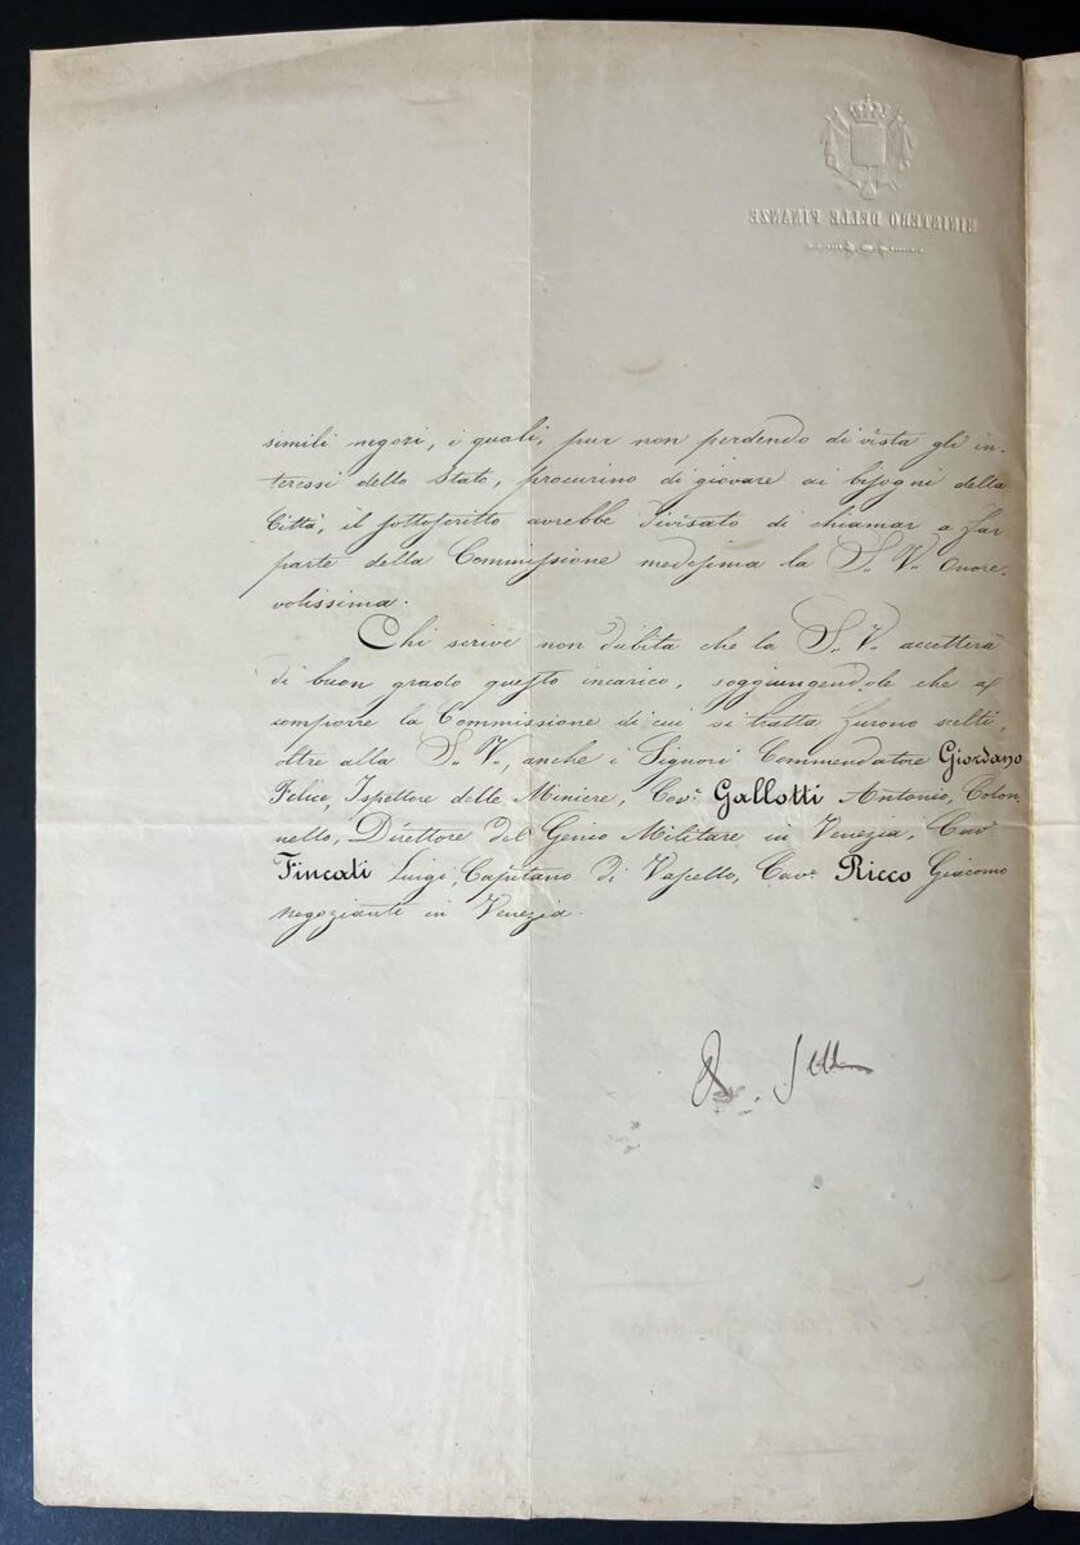 MINISTERO DELLE FINANZE
simili negozi, i quali, pur non perdendo di vista gli in-
teressi dello Stato, procurino di giovare ai bisogni della
Città, il sottoscritto avrebbe divisato di chiamar a far
parte della Commissione medesima la S. V. Onore-
volissima.
Chi scrive non dubita che la S. V. accetterà
di buon grado questo incarico, soggiungendole che a
comporre la Commissione di cui si tratta furono scelti,
oltre alla S. V., anche i Signori Commendatore Giordano
Felice, Ispettore delle Miniere, Cav. Gallotti Antonio, Colon-
nello, Direttore del Genio Militare in Venezia, Cav.
Fincati Luigi, Capitano di Vascello, Cav. Ricco Giacomo
negoziante in Venezia.
Q. Sella